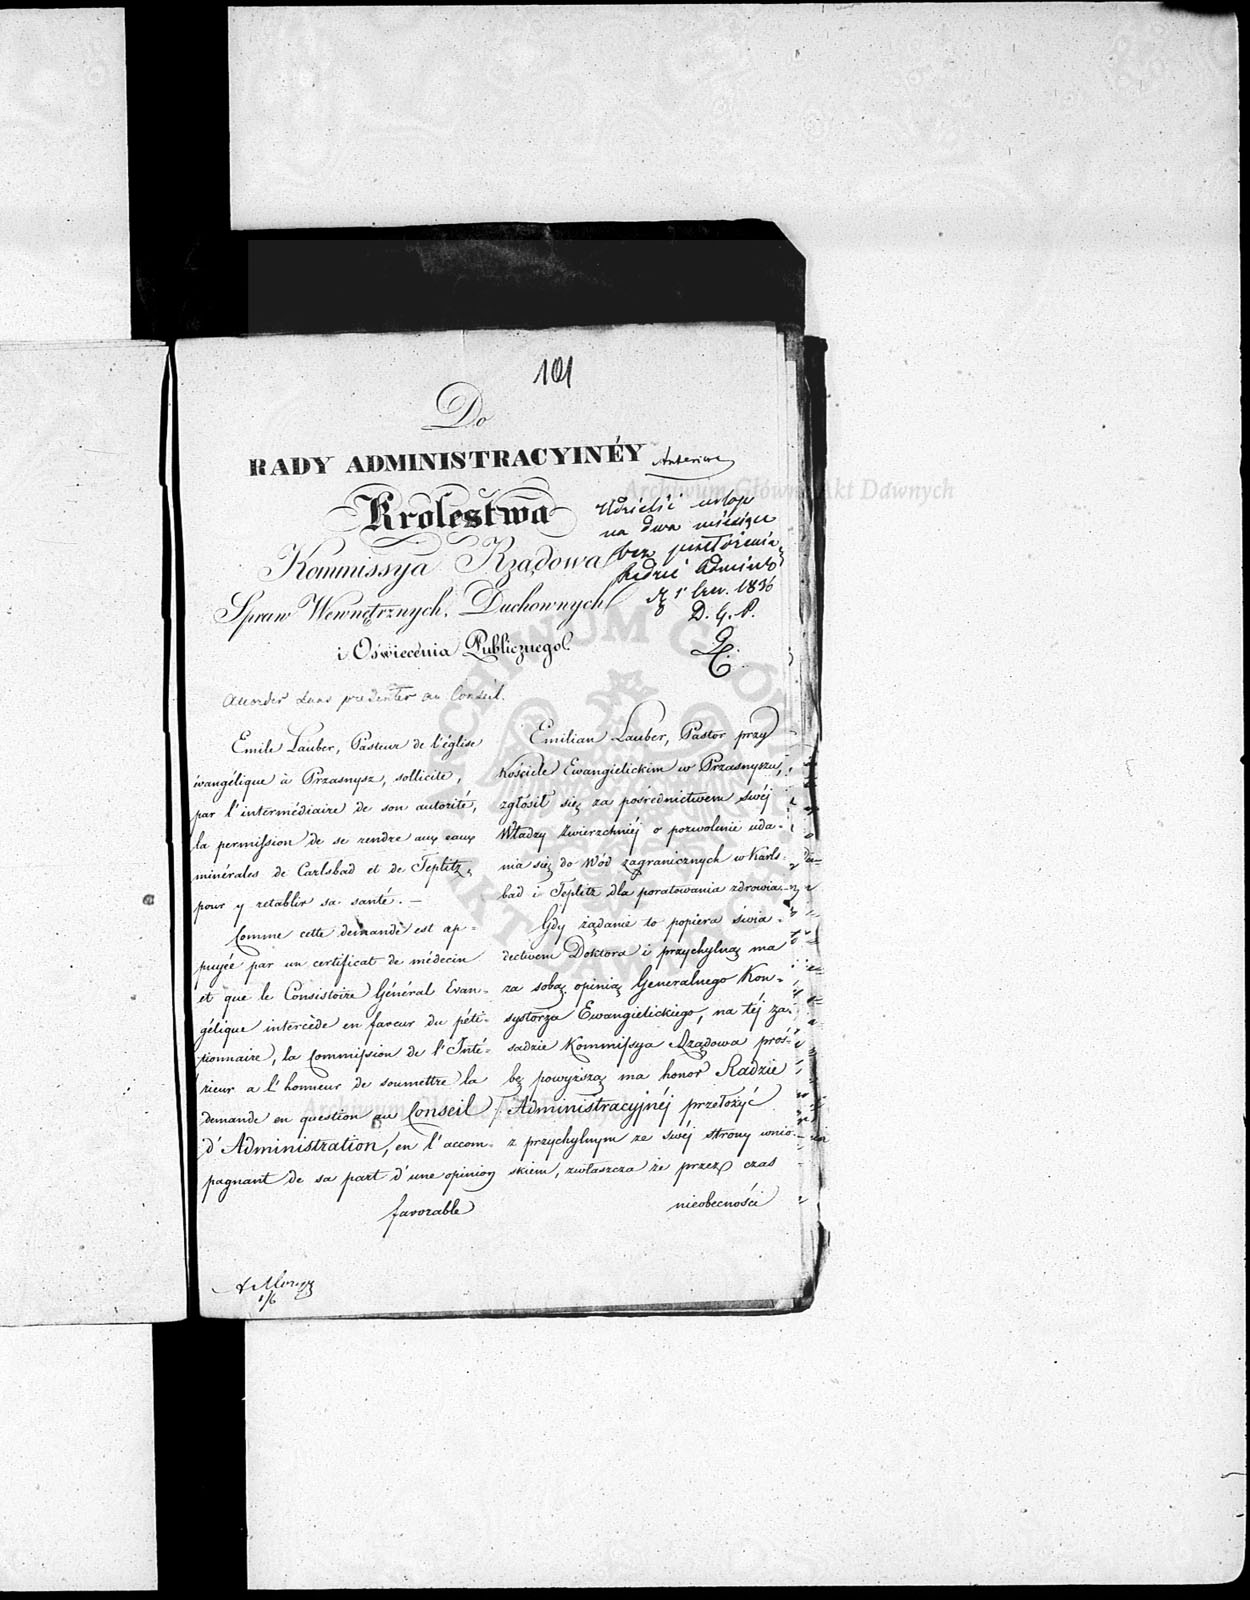 101
Do
RADY ADMINISTRACYINÉY
Królestwa
Kommissya Rządowa
Spraw Wewnętrznych, Duchownych
i Oświecenia Publicznego.
Udzielić urlop
na dwa miesiące
bez przełożenia
Radzie Administr
1836
D. G. P.
Accorder sans présenter au Conseil.
Emile Lauber, Pasteur de l'église
évangélique à Przasnysz, sollicite,
par l'intermédiaire de son autorité,
la permission de se rendre aux eaux
minérales de Carlsbad et de Teplitz,
pour y retablir sa santé. —
Comme cette demande est ap-
puyée par un certificat de médecin
et que le Consistoire Général Evan-
gélique intercède en faveur du péti-
tionnaire, la Commission de l'Inté-
rieur a l'honneur de soumettre la
demande en question au Conseil
d'Administration, en l'accom-
pagnant de sa part d'une opinion
favorable
Emilian Lauber, Pastor przy
Kościele Ewangielickim w Przasnyszu,
zgłosił się za pośrednictwem swéj
Władzy Zwierzchniéj o pozwolenie uda-
nia się do Wód zagranicznych w Karls-
bad i Teplitz dla poratowania zdrowia. —
Gdy żądanie to popiera świa-
dectwem Doktora i przychylną ma
za sobą opinią Generalnego Kon-
systorza Ewangielickiego, na téj za-
sadzie Kommissya Rządowa proś-
bę powyższą ma honor Radzie
Administracyjnéj przełożyć
z przychylnym ze swéj strony wnio-
skiem, zwłaszcza że przez czas
nieobecności
1/6
Archiwum Główne Akt Dawnych
Archiwum Główne Akt Dawnych
ARCHIWUM GŁÓWNE AKT DAWNYCH